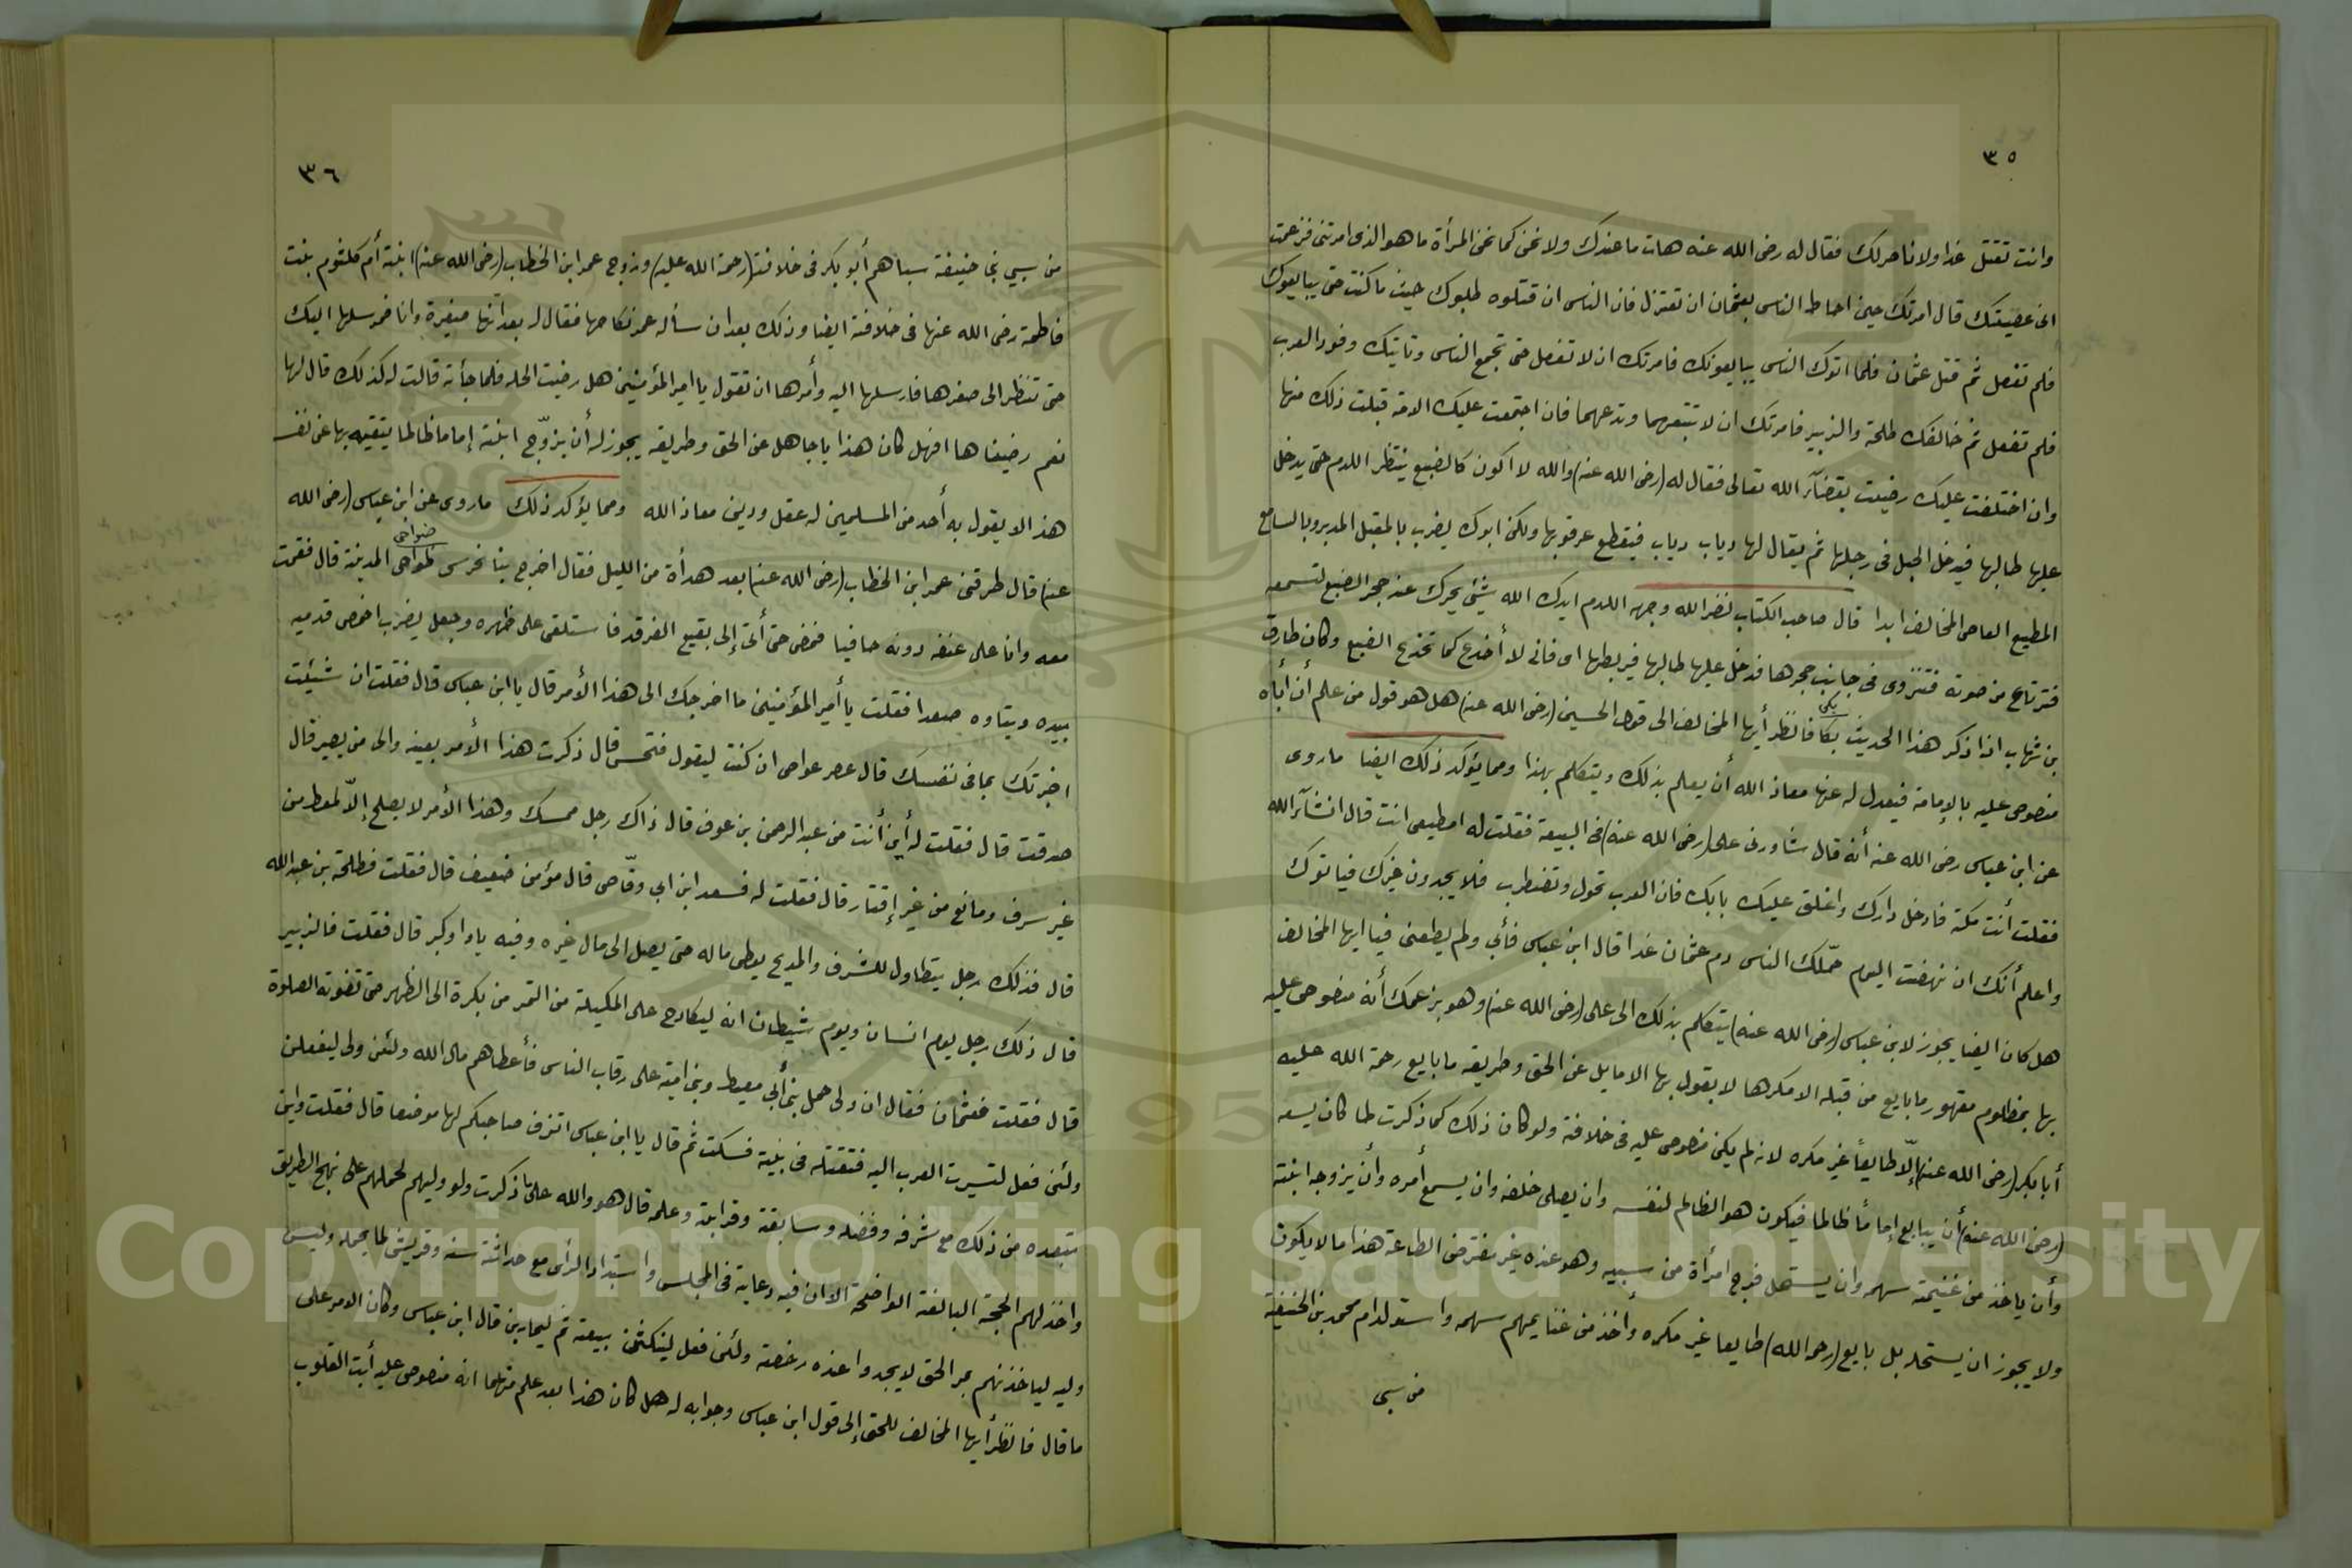 ٣٥
وانت تقتل غدا ولا ناصر لك فقال له رضى الله عنه هات ما عندك ولا تخن كما تخن المرأة ما هو الذى امرتنى فزعمت
انى عصيتك قال امرتك حين احاط الناس بعثمان ان تعتزل فان الناس ان قتلوه طلبوك حيث ما كنت حتى يبايعوك
فلم تفعل ثم قتل عثمان فلما اتوك الناس يبايعونك فامرتك ان لا تفعل حتى تجمع الناس وتاتيك وفود العرب
فلم تفعل ثم خالفك طلحة والزبير فامرتك ان لا تتبعهما وتدعهما فان اجتمعت عليك الامة قبلت ذلك منها
وان اختلفت عليك رضيت بقضآء الله تعالى فقال له (رضى الله عنه) والله لا اكون كالضبع ينتظر اللدم حتى يدخل
عليها طالبها فيدخل الحبل فى رجلها ثم يقال لها دباب دباب فيقطع عرقوبها ولكن ابوك يضرب بالمقبل المدبر وبالسامع
المطيع العاصى المخالف ابدا قال صاحب الكتاب نضر الله وجهه اللدم ايدك الله شئ يحرك عند جحر الضبع لتسمعه
فترتاع من صوته فتنزوى فى جانب جحرها فدخل عليها طالبها فيربطها اى فانى لا أخدع كما تخدع الضبع وكان طارق
بن شهاب اذا ذكر هذا الحديث بكا فانظر أيها المخالف الى قول الحسين (رضى الله عنه) هل هو قول من علم أن أباه
بكى
منصوص عليه بالإمامة فيعدل له عنها معاذ الله أن يعلم بذلك ويتكلم بهذا ومما يؤكد ذلك ايضا ما روى
عن ابن عباس رضى الله عنه أنه قال شاورنى على (رضى الله عنه) فى البيعة فقلت له امطيعى انت قال انشآء الله
فقلت أنت مكة فادخل دارك واغلق عليك بابك فان العرب تحول وتضطرب فلا يجدون غيرك فيأتوك
واعلم أنك ان نهضت اليوم حمّلك الناس دم عثمان غدا قال ابن عباس فأبى ولم يطعنى فيا ايها المخالف
هل كان ايضا يجوز لابن عباس (رضى الله عنه) يتكلم بذلك الى على (رضى الله عنه) وهو بزعمك أنه منصوص عليه
بها بمظلوم مقهور ما بايع من قبله الا مكرها لا يقول بها الا مايل عن الحق وطريقه ما بايع رحمة الله عليه
أبابكر (رضى الله عنهما) إلّا طايعاً غير مكره لانه لم يكن منصوص عليه فى خلافة ولو كان ذلك كما ذكرت لما كان يسعه
(رضى الله عنه) أن يبايع إماماً ظالما فيكون هو الظالم لنفسه وان يصلى خلفه وان يسمع أمره وأن يزوجه ابنته
وأن ياخذ من غنيمته سهمه وان يستحل فرج امرأة من سبيه وهو عنده غير مفترض الطاعة هذا ما لا يكون
ولا يجوز ان يستحله بل بايع (رحمه الله) طايعا غير مكره وأخذ من غنايمهم سهمه واستولد ام محمد بن الحنيفة
من سبى
٣٦
من سبي بنى حنيفة سباهم أبو بكر فى خلافته (رحمة الله عليه) وزوج عمر ابن الخطاب (رضى الله عنه) ابنته أم كلثوم بنت
فاطمة رضى الله عنها فى خلافته ايضا وذلك بعد ان سأله عمر نكاحها فقال له بعد انها صغيرة وانا فمرسلها اليك
حتى تنظر الى صغرها فارسلها اليه وأمرها ان تقول يا امير المؤمنين هل رضيت الحله فلما جأته قالت له كذلك قال لها
نعم رضيناها افهل كان هذا يا جاهل عن الحق وطريقه يجوز له أن يزوّج ابنته إماما ظالما يتقيه بها عن نفسه
هذا لا يقول به أحد من المسلمين له عقل ودين معاذ الله ومما يؤكد ذلك ما روى عن ابن عباس (رضى الله
عنه) قال طرقنى عمر ابن الخطاب (رضى الله عنه) بعد هدأة من الليل فقال اخرج بنا نحرس ظواحى المدينة قال فقمت
ضواحى
معه وانا على عنقه دونه حافيا فمضى حتى أتى إلى بقيع الغرقد فاستلقى على ظهره وجعل يضرب اخمص قدميه
بيده ويتاوه صعدا فقلت يا أمير المؤمنين ما اخرجك الى هذا الأمر قال يا ابن عباس قال فقلت ان شيئت
اخبرتك بما فى نفسك قال غص غواص ان كنت ليقول فتحس قال ذكرت هذا الأمر بعينه والى من يصير قال
صدقت قال فقلت له أين أنت من عبد الرحمن بن عوف قال ذاك رجل ممسك وهذا الأمر لا يصلح إلّا لمعط من
غير سرف ومانع من غير إقتار قال فقلت له فسعد ابن ابى وقّاص قال مؤمن ضعيف قال فقلت فطلحة بن عبد الله
قال فذلك رجل يتطاول للشرف والمديح يعطى ماله حتى يصل الى مال غيره وفيه باوا وكبر قال فقلت فالزبير
قال ذلك رجل يوم انسان ويوم شيطان انه ليكادح على المكيلة من التمر من بكرة الى الظهر حتى تفوته الصلوة
قال فقلت فعثمان فقال ان ولى حمل بنى أبى معيط وبنى امية على رقاب الناس فأعطاهم مال الله ولئن ولى ليفعلن
ولئن فعل لتسيرت العرب اليه فتقتله فى بيته فسكت ثم قال يا ابن عباس اتزف صاحبكم لها موضعا قال فقلت واين
بتبعده من ذلك مع شرفه وفضله وسابقة وقرابته وعلمه قال هو والله على ما ذكرت ولو وليهم لحملهم على نهج الطريق
واخذ لهم الحجة البالغة الواضحة الا ان فيه دعابة فى المجلس واستبداد الرأى مع حداثة سنه وقريش لما يحمله ولين
وليه لياخذنهم بمر الحق لا يجدوا عنده رخصة ولئن فعل لينكثن بيعته ثم ليحاربن قال ابن عباس وكان الامر على
ما قال فانظر أيها المخالف للحق إلى قول ابن عباس وجوابه له هل كان هذا بعد علم منهما انه منصوص عليه أبت القلوب
Copyright © King Saud University
1957